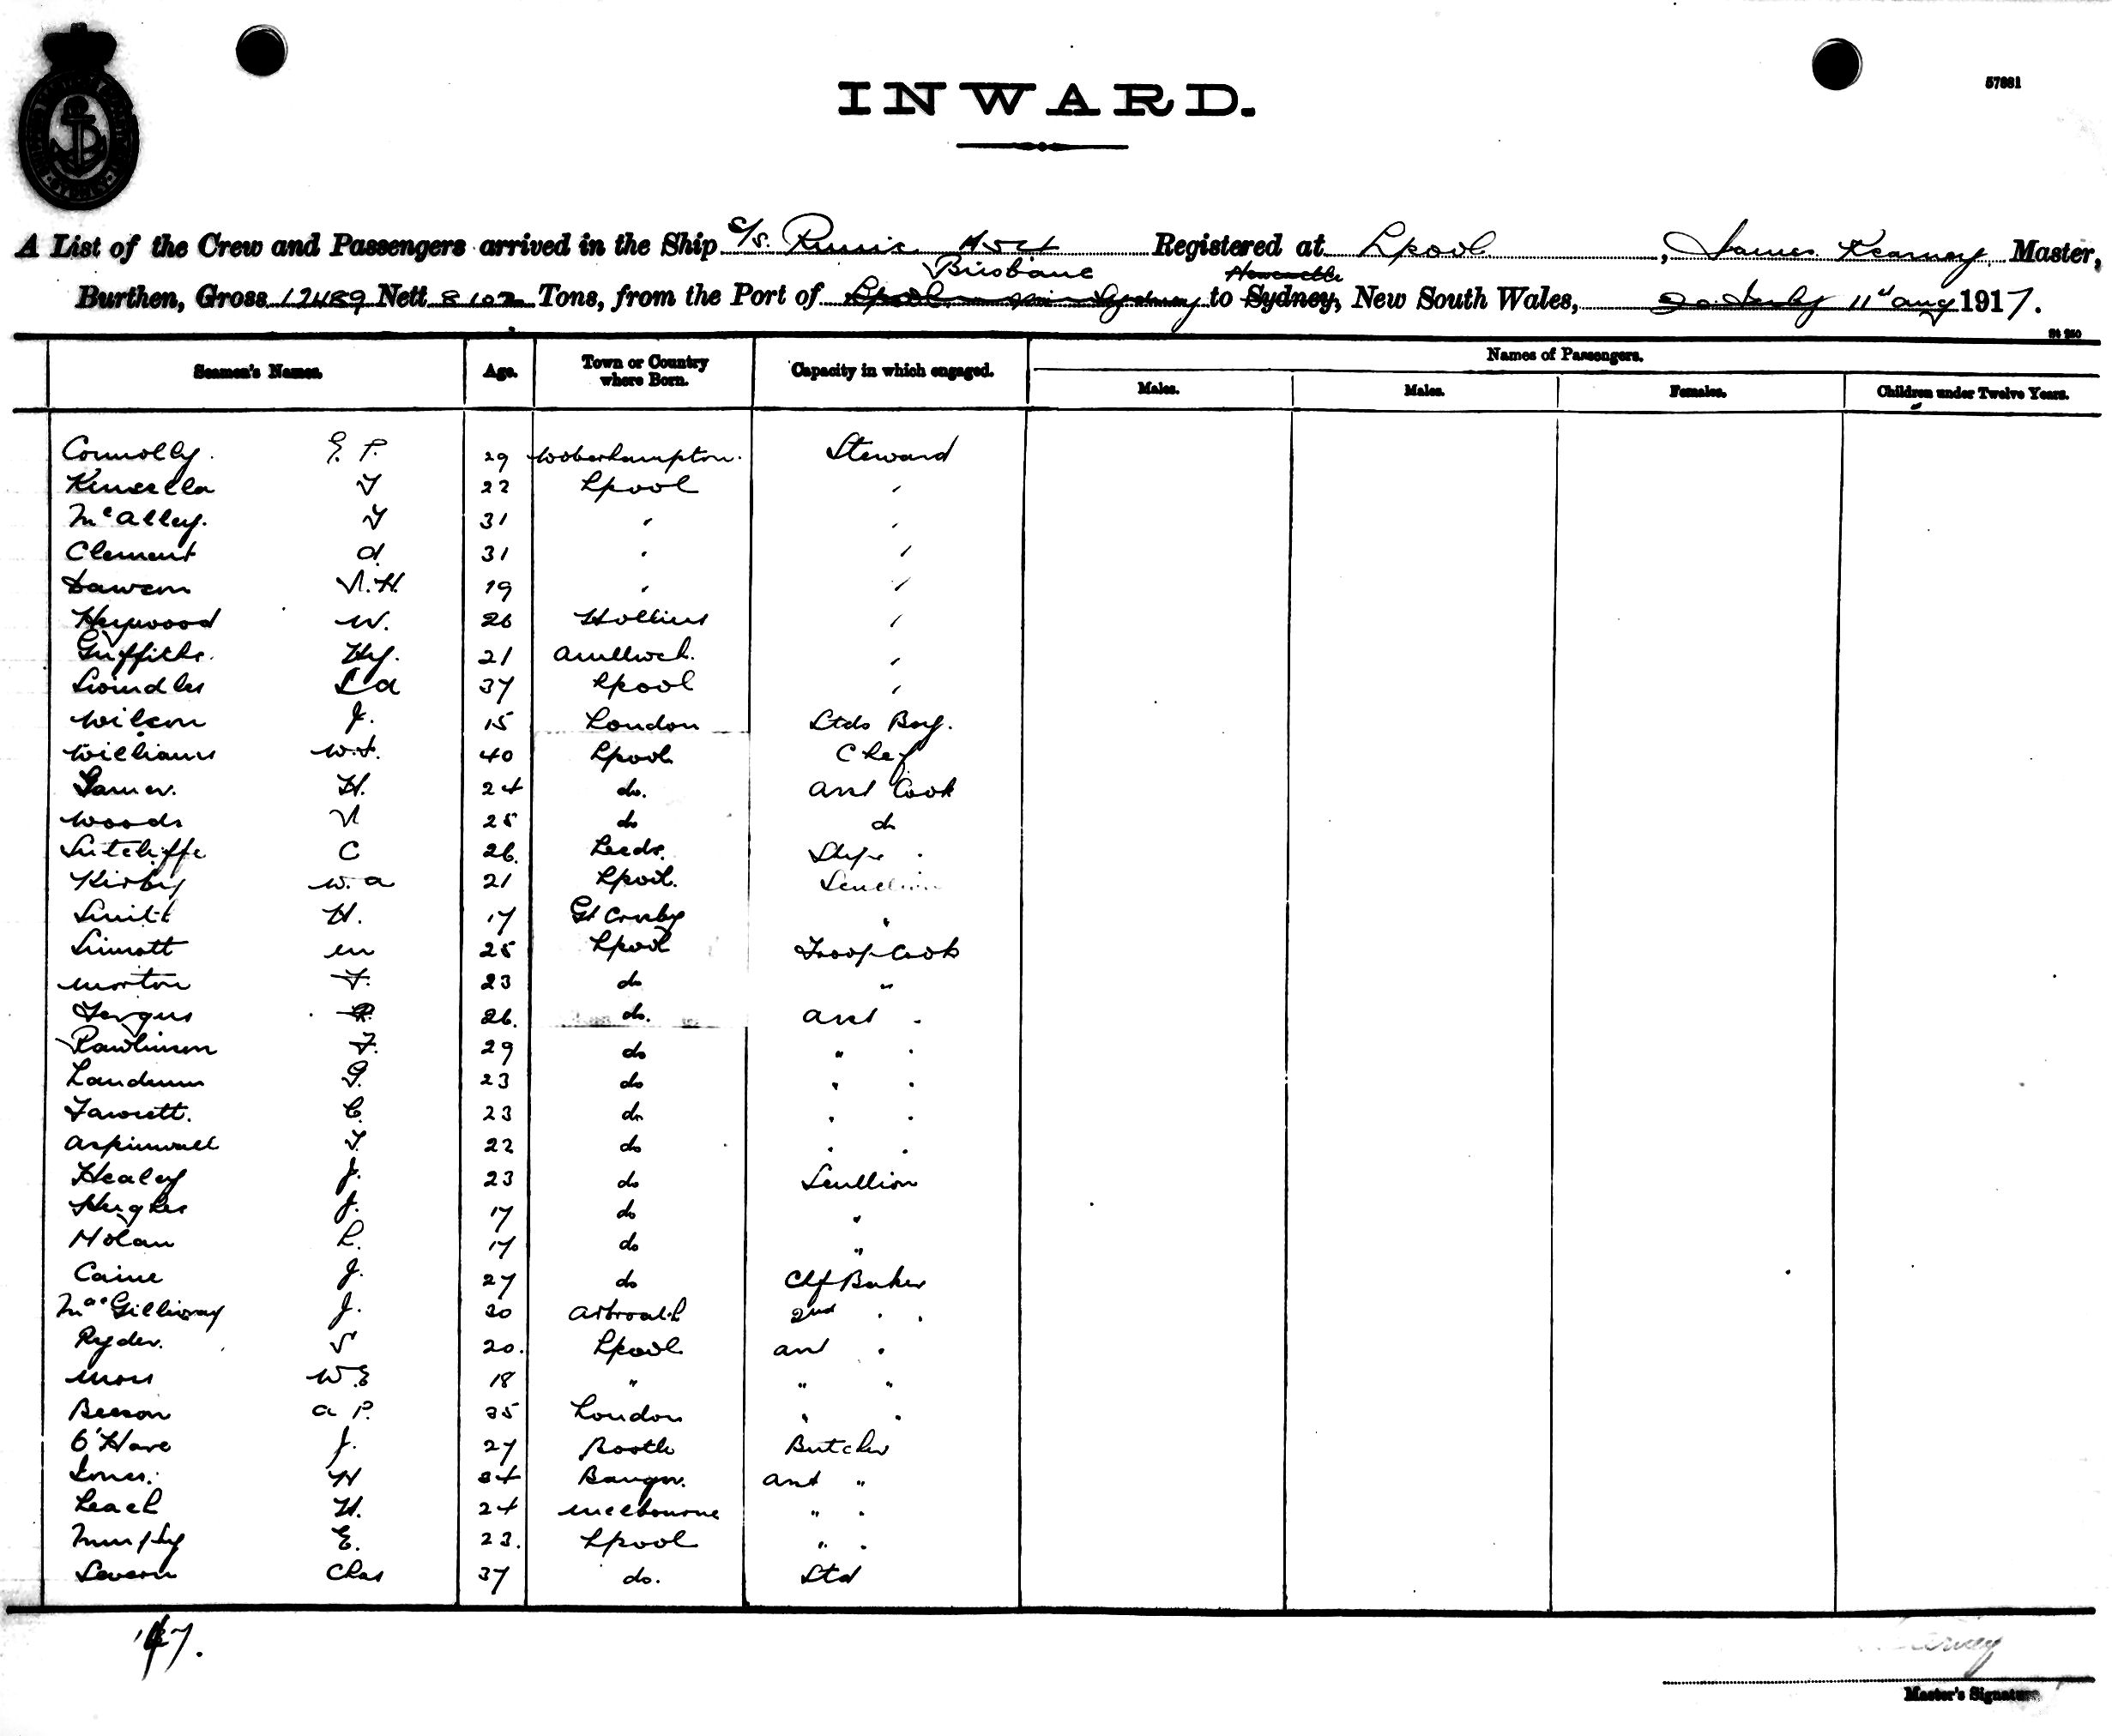 57881
INWARD.
A List of the Crew and Passengers arrived in the Ship S/S. Runic A54 Registered at Lpool, James Kearney Master,
Brisbane Newcastle
Burthen, Gross 12489 Nett 8102 Tons, from the Port of Lpool via Sydney to Sydney, New South Wales, 20 July 11th Aug 1917.
St 250
Seamen's Names. Age. Town or Country where Born. Capacity in which engaged. Names of Passengers.
Males. Males. Females. Children under Twelve Years.
Connolly. E. P. 29 Woberhampton. Steward
Kinsella T 22 Lpool "
McAlley. T 31 " "
Clement A 31 " "
Dawson N.H. 19 " "
Heywood W. 26 Hollins "
Griffiths. Hy. 21 Amllwch. "
Swindles Ed 37 Lpool "
Wilson J. 15 London Stds Boy.
Williams W.J. 40 Lpool Chef
H. 24 do. Asst Cook
Woods N 25 do do
Sutcliffe C 26. Leeds. Ships "
Kirby W.A 21 Lpool. Scullion
Smith H. 17 Gt Crosby "
Sinnott M 25 Lpool Troop Cook
Morton F. 23 do "
Fergus R. 26. do. Asst "
Rawlinson F. 29 do " "
Landrum G. 23 do " "
Fawcett. C. 23 do " "
Aspinwall T. 22 do " "
Healey J. 23 do Scullion
Hughes J. 17 do "
Nolan L. 17 do "
Caine J. 27 do Chf Baker
MacGillivray J. 20 Arbroath 2nd "
Ryder. V 20. Lpool Asst "
Moss W E 18 " " "
Beeson A P. 35 London " "
O'Hare J. 27 Bootle Butcher
Jones. W 24 Bangor. Asst "
Leach H. 24 Melbourne " "
Murphy E. 23. Lpool " "
Severn Chas 37 do. Std
147.
Master's Signature